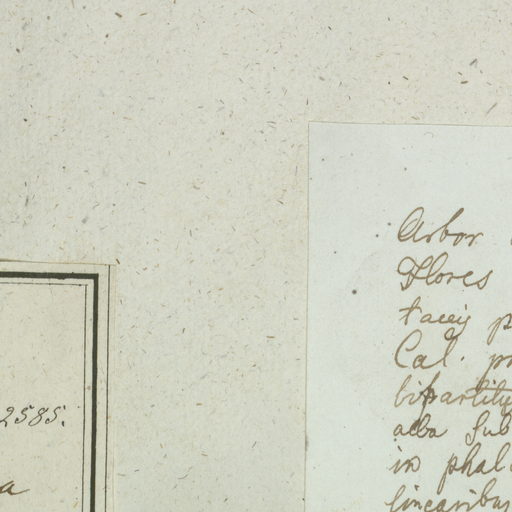 2585.
a
Arbor
Flores
taceis p
Cal. pr
bipartity
alba sub
in phal
linearibus